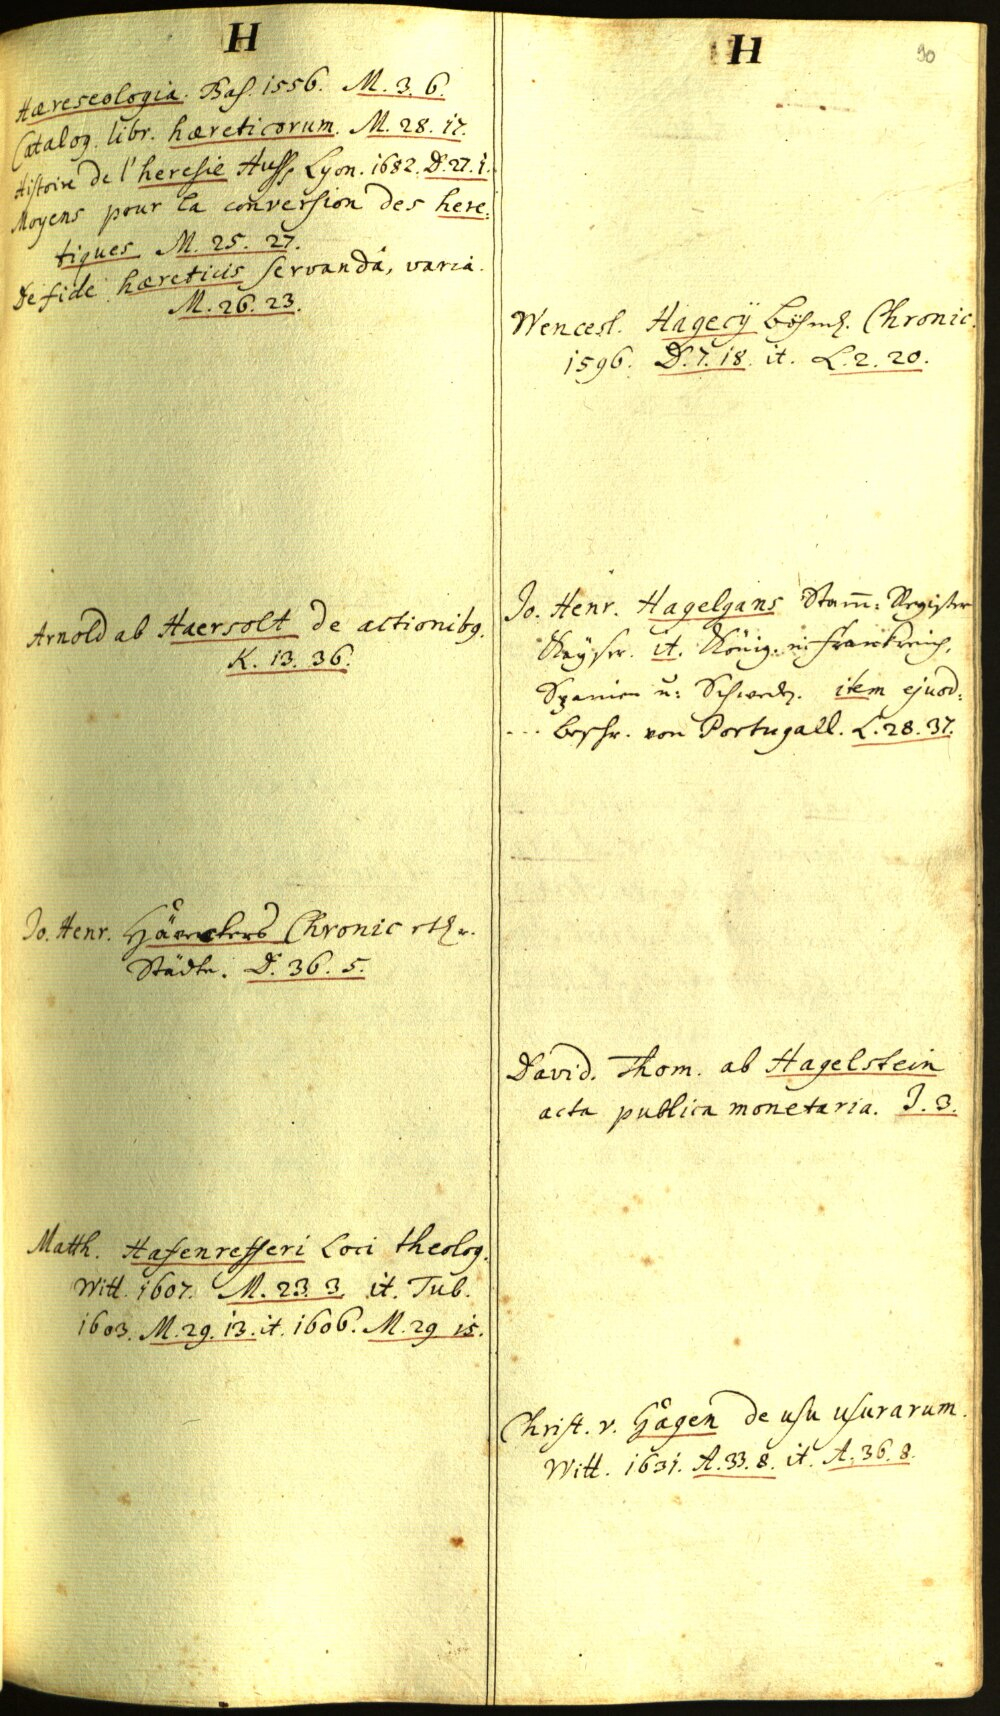 H
Hæreseologia. Bas. 1556. M. 3. 6.
Catalog. libr. hæreticorum. M. 28. 17.
Histoire de l'heresie Huss, Lyon. 1682. D. 27. 1.
Moyens pour la conversion des here:
tiques M. 25. 27.
De fide hæreticis servandâ, varia.
M. 26. 23.
Arnold ab Haersolt de actionibg.
K. 13. 36.
Jo. Henr. Chronic
Städte. D. 36. 5.
Matth. Hafenrefferi Loci theolog.
Witt. 1607. M. 23. 3. it. Tub.
1603. M. 29. 13. it. 1606. M. 29 15.
H
90
Wencesl. Hagecÿ Böhmh. Chronic.
1596. D. 7. 18. it. L. 2. 20.
Jo. Henr. Hagelgans Stam̅: Register
Kaÿser. it. König. in Franckreich,
Spanien u: Schweden. item ejusd:
--- beschr. von Portugall. L. 28. 37.
David. Thom. ab Hagelstein
acta publica monetaria. J. 3.
Christ. v. Hagen de usu usurarum.
Witt. 1631. A. 33. 8. it. A. 36. 8.